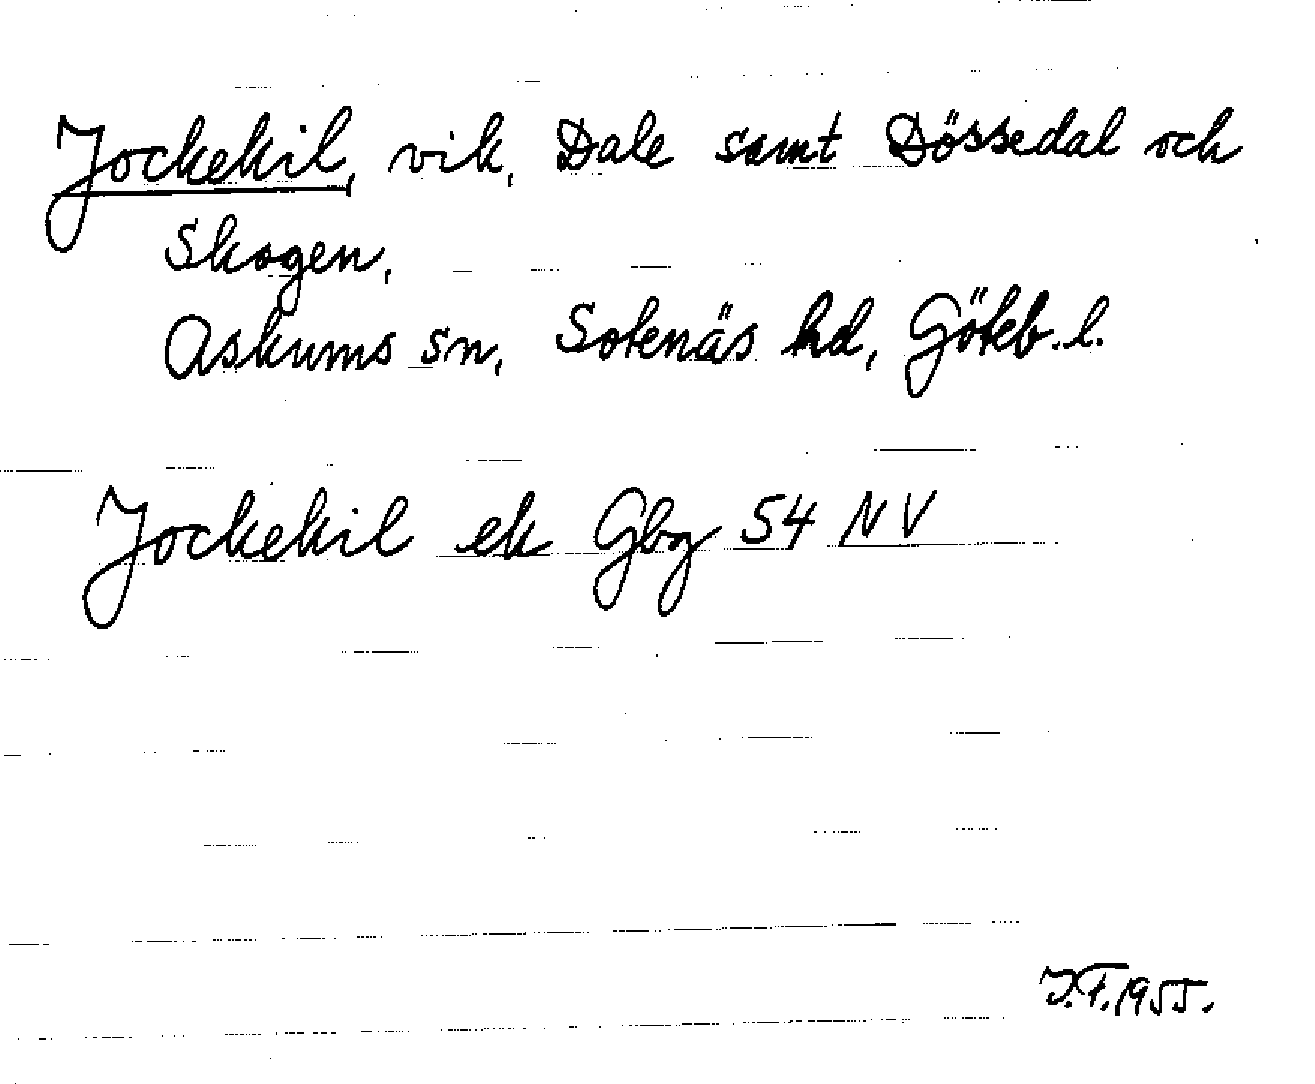 Jockekil, vik, Dale samt Dössedal och
Skogen,
Askums sn, Sotenäs hd, Göteb. l.
Jockekil ek Gbg 54 NV
J.F. 1955.